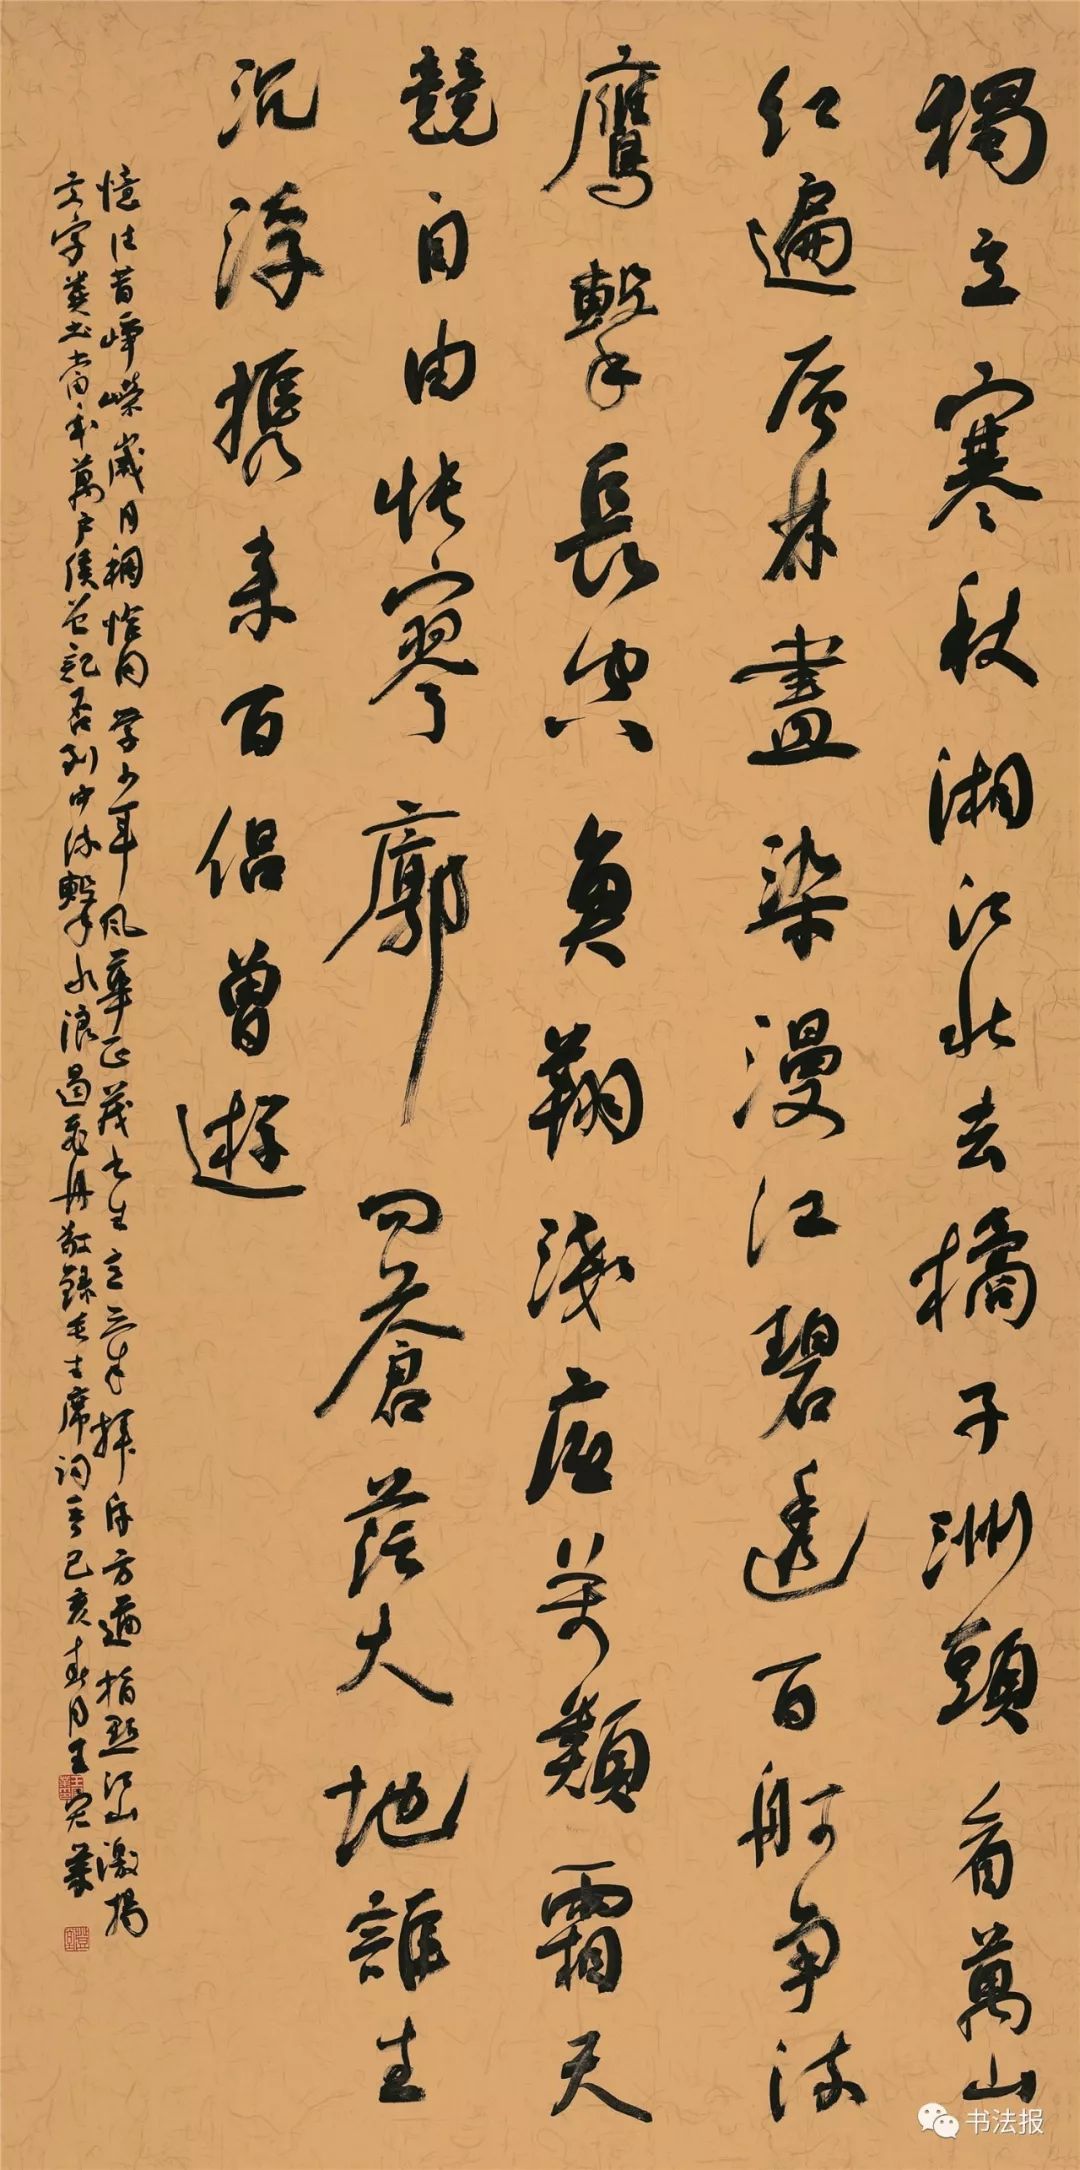 獨立寒秋湘江北去橘子洲頭看萬山
紅遍层林盡染漫江碧透百舸争流
鹰擊長空魚翔淺底萬類霜天
競自由悵寥廓問蒼茫大地誰主
沉浮携來百侣曾遊
憶往昔崢嶸歲月稠恰同學少年風華正茂書生意氣揮斥方遒指點江山激揚
文字糞土當年萬户侯曾記否到中流擊水浪遏飛舟敬錄毛主席詞己亥春月王
书法报